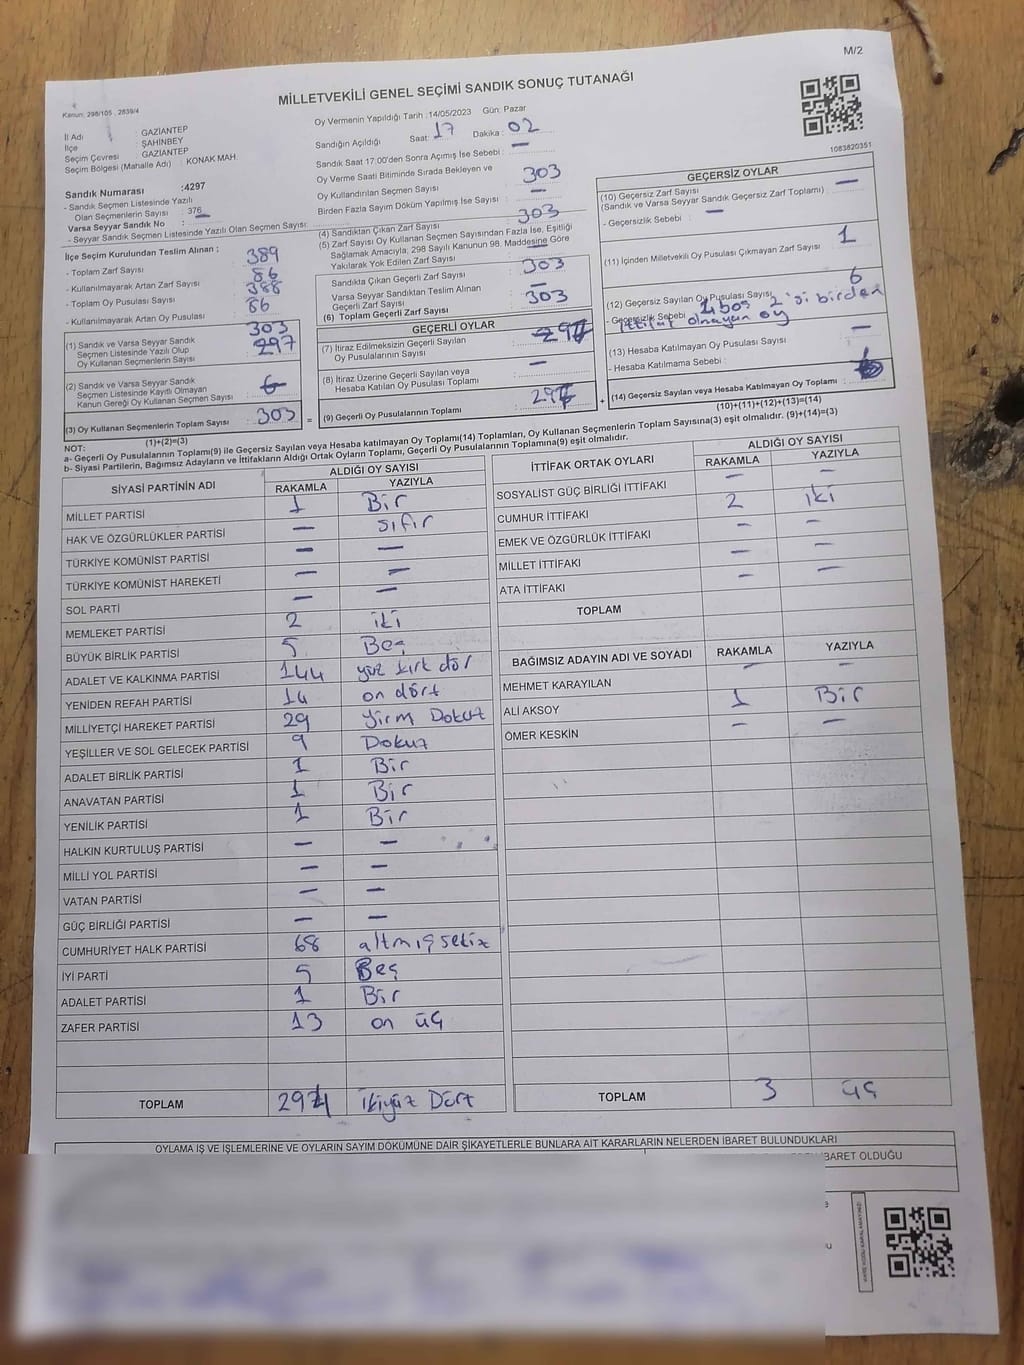 M/2
MİLLETVEKİLİ GENEL SEÇİMİ SANDIK SONUÇ TUTANAĞI
Kanun: 298/105 , 2839/4
İl Adı : GAZİANTEP
İlçe : ŞAHİNBEY
Seçim Çevresi : GAZİANTEP
Seçim Bölgesi (Mahalle Adı) : KONAK MAH.
Sandık Numarası :4297
- Sandık Seçmen Listesinde Yazılı
Olan Seçmenlerin Sayısı : 376
Varsa Seyyar Sandık No : —
- Seyyar Sandık Seçmen Listesinde Yazılı Olan Seçmen Sayısı:
İlçe Seçim Kurulundan Teslim Alınan ;
- Toplam Zarf Sayısı : 389
- Kullanılmayarak Artan Zarf Sayısı : 86
- Toplam Oy Pusulası Sayısı : 388
- Kullanılmayarak Artan Oy Pusulası : 86
303
(1) Sandık ve Varsa Seyyar Sandık
Seçmen Listesinde Yazılı Olup
Oy Kullanan Seçmenlerin Sayısı : 297
(2) Sandık ve Varsa Seyyar Sandık
Seçmen Listesinde Kayıtlı Olmayan
Kanun Gereği Oy Kullanan Seçmen Sayısı : 6
(3) Oy Kullanan Seçmenlerin Toplam Sayısı : 303 =
(1)+(2)=(3)
Oy Vermenin Yapıldığı Tarih : 14/05/2023 Gün: Pazar
Sandığın Açıldığı Saat: 17 Dakika : 02
Sandık Saat 17:00'den Sonra Açımış İse Sebebi : —
Oy Verme Saati Bitiminde Sırada Bekleyen ve
Oy Kullandırılan Seçmen Sayısı : 303
Birden Fazla Sayım Döküm Yapılmış İse Sayısı : —
(4) Sandıktan Çıkan Zarf Sayısı : 303
(5) Zarf Sayısı Oy Kullanan Seçmen Sayısından Fazla İse, Eşitliği
Sağlamak Amacıyla, 298 Sayılı Kanunun 98. Maddesine Göre
Yakılarak Yok Edilen Zarf Sayısı : —
Sandıkta Çıkan Geçerli Zarf Sayısı : 303
Varsa Seyyar Sandıktan Teslim Alınan
Geçerli Zarf Sayısı : —
(6) Toplam Geçerli Zarf Sayısı : 303
GEÇERLİ OYLAR
(7) İtiraz Edilmeksizin Geçerli Sayılan
Oy Pusulalarının Sayısı :
(8) İtiraz Üzerine Geçerli Sayılan veya
Hesaba Katılan Oy Pusulası Toplamı : —
(9) Geçerli Oy Pusulalarının Toplamı : +
1083820351
GEÇERSİZ OYLAR
(10) Geçersiz Zarf Sayısı : —
(Sandık ve Varsa Seyyar Sandık Geçersiz Zarf Toplamı)
- Geçersizlik Sebebi : —
(11) İçinden Milletvekili Oy Pusulası Çıkmayan Zarf Sayısı : 1
(12) Geçersiz Sayılan Oy Pusulası Sayısı : 6
- Geçersizlik Sebebi : 4 boş 2'si birden
ittifak olmayan oy
(13) Hesaba Katılmayan Oy Pusulası Sayısı : —
- Hesaba Katılmama Sebebi :
(14) Geçersiz Sayılan veya Hesaba Katılmayan Oy Toplamı :
(10)+(11)+(12)+(13)=(14)
NOT:
a- Geçerli Oy Pusulalarının Toplamı(9) ile Geçersiz Sayılan veya Hesaba katılmayan Oy Toplamı(14) Toplamları, Oy Kullanan Seçmenlerin Toplam Sayısına(3) eşit olmalıdır. (9)+(14)=(3)
b- Siyasi Partilerin, Bağımsız Adayların ve İttifakların Aldığı Ortak Oyların Toplamı, Geçerli Oy Pusulalarının Toplamına(9) eşit olmalıdır.
SİYASİ PARTİNİN ADI ALDIĞI OY SAYISI
RAKAMLA YAZIYLA
MİLLET PARTİSİ 1 Bir
HAK VE ÖZGÜRLÜKLER PARTİSİ — sıfır
TÜRKİYE KOMÜNİST PARTİSİ — —
TÜRKİYE KOMÜNİST HAREKETİ — —
SOL PARTİ — —
MEMLEKET PARTİSİ 2 iki
BÜYÜK BİRLİK PARTİSİ 5 Beş
ADALET VE KALKINMA PARTİSİ 144 yüz kırk dör
YENİDEN REFAH PARTİSİ 14 on dört
MİLLİYETÇİ HAREKET PARTİSİ 29 yirm Dokuz
YEŞİLLER VE SOL GELECEK PARTİSİ 9 Dokuz
ADALET BİRLİK PARTİSİ 1 Bir
ANAVATAN PARTİSİ 1 Bir
YENİLİK PARTİSİ 1 Bir
HALKIN KURTULUŞ PARTİSİ — —
MİLLİ YOL PARTİSİ — —
VATAN PARTİSİ — —
GÜÇ BİRLİĞİ PARTİSİ — —
CUMHURİYET HALK PARTİSİ 68 altmış sekiz
İYİ PARTİ 5 Beş
ADALET PARTİSİ 1 Bir
ZAFER PARTİSİ 13 on üç
TOPLAM 294 ikiyüz Dört
İTTİFAK ORTAK OYLARI ALDIĞI OY SAYISI
RAKAMLA YAZIYLA
SOSYALİST GÜÇ BİRLİĞİ İTTİFAKI — —
CUMHUR İTTİFAKI 2 iki
EMEK VE ÖZGÜRLÜK İTTİFAKI — —
MİLLET İTTİFAKI — —
ATA İTTİFAKI — —
TOPLAM
BAĞIMSIZ ADAYIN ADI VE SOYADI RAKAMLA YAZIYLA
MEHMET KARAYILAN — —
ALİ AKSOY 1 Bir
ÖMER KESKİN — —
TOPLAM 3 üç
OYLAMA İŞ VE İŞLEMLERİNE VE OYLARIN SAYIM DÖKÜMÜNE DAİR ŞİKAYETLERLE BUNLARA AİT KARARLARIN NELERDEN İBARET BULUNDUKLARI
İBARET OLDUĞU